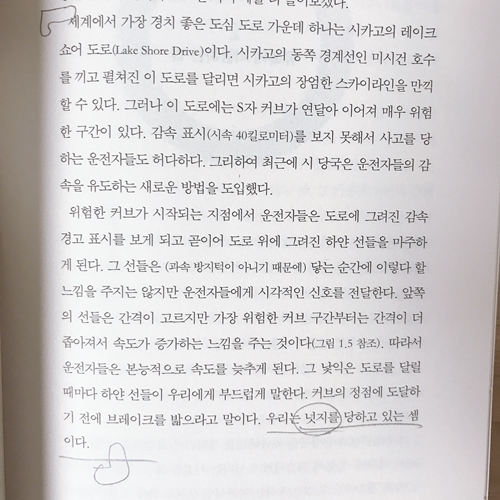 세계에서 가장 경치 좋은 도심 도로 가운데 하나는 시카고의 레이크
쇼어 도로(Lake Shore Drive)이다. 시카고의 동쪽 경계선인 미시건 호수
를 끼고 펼쳐진 이 도로를 달리면 시카고의 장엄한 스카이라인을 만끽
할 수 있다. 그러나 이 도로에는 S자 커브가 연달아 이어져 매우 위험
한 구간이 있다. 감속 표시(시속 40킬로미터)를 보지 못해서 사고를 당
하는 운전자들도 허다하다. 그리하여 최근에 시 당국은 운전자들의 감
속을 유도하는 새로운 방법을 도입했다.
위험한 커브가 시작되는 지점에서 운전자들은 도로에 그려진 감속
경고 표시를 보게 되고 곧이어 도로 위에 그려진 하얀 선들을 마주하
게 된다. 그 선들은 (과속 방지턱이 아니기 때문에) 닿는 순간에 이렇다 할
느낌을 주지는 않지만 운전자들에게 시각적인 신호를 전달한다. 앞쪽
의 선들은 간격이 고르지만 가장 위험한 커브 구간부터는 간격이 더
좁아져서 속도가 증가하는 느낌을 주는 것이다(그림 1.5 참조). 따라서
운전자들은 본능적으로 속도를 늦추게 된다. 그 낯익은 도로를 달릴
때마다 하얀 선들이 우리에게 부드럽게 말한다. 커브의 정점에 도달하
기 전에 브레이크를 밟으라고 말이다. 우리는 넛지를 당하고 있는 셈
이다.